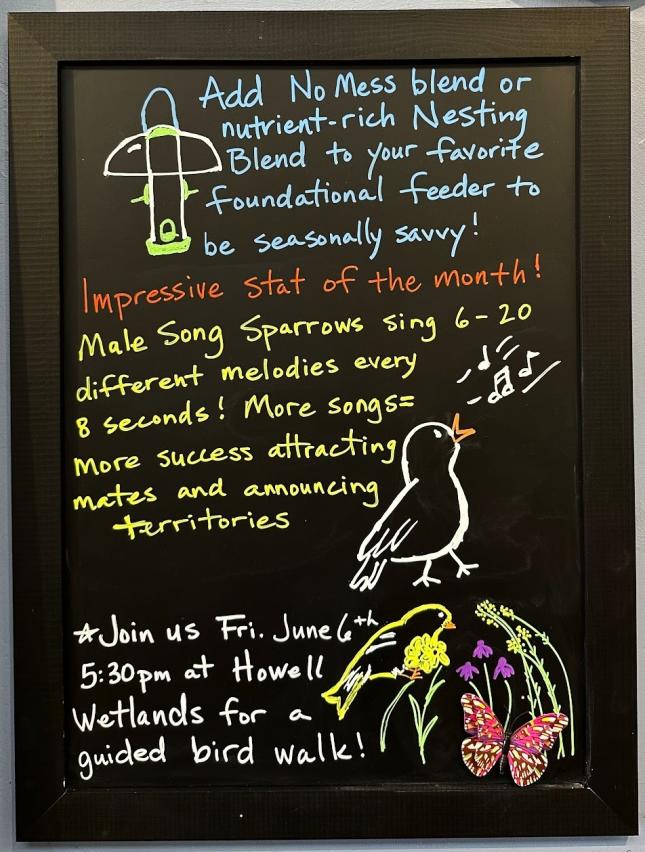 Add No Mess blend or
nutrient-rich Nesting
Blend to your favorite
foundational feeder to
be seasonally savvy!
Impressive stat of the month!
Male Song Sparrows sing 6-20
different melodies every
8 seconds! More songs=
more success attracting
mates and announcing
territories
*Join us Fri. June 6th
5:30pm at Howell
Wetlands for a
guided bird walk!